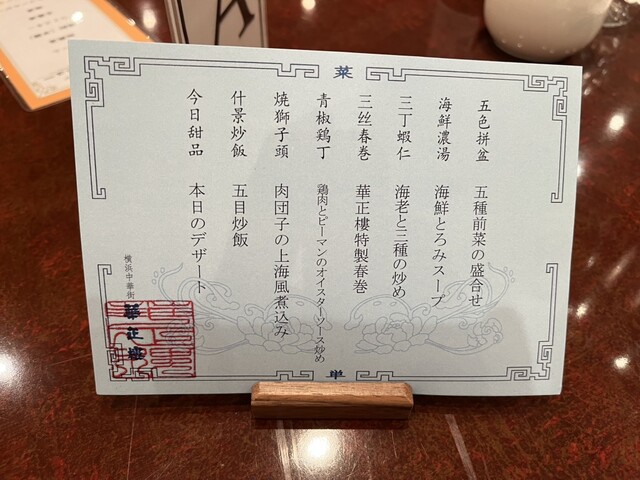 菜
五色拼盆 五種前菜の盛合せ
海鮮濃湯 海鮮とろみスープ
三丁蝦仁 海老と三種の炒め
三丝春巻 華正樓特製春巻
青椒鶏丁 鶏肉とピーマンのオイスターソース炒め
焼獅子頭 肉団子の上海風煮込み
什景炒飯 五目炒飯
今日甜品 本日のデザート
横浜中華街
華正樓
単